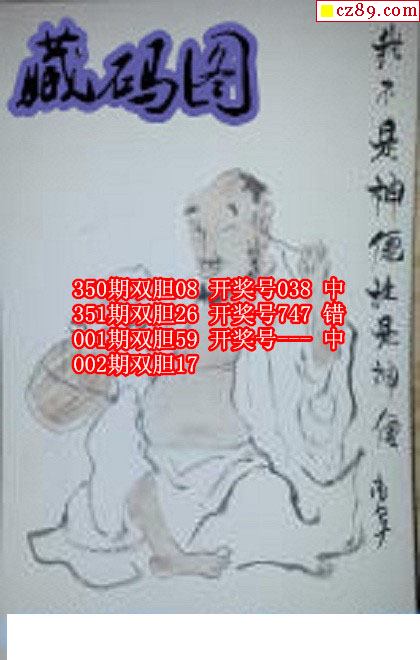 cz89.com
藏码图
我不是神仙谁是神仙
350期双胆08 开奖号038 中
351期双胆26 开奖号747 错
001期双胆59 开奖号--- 中
002期双胆17